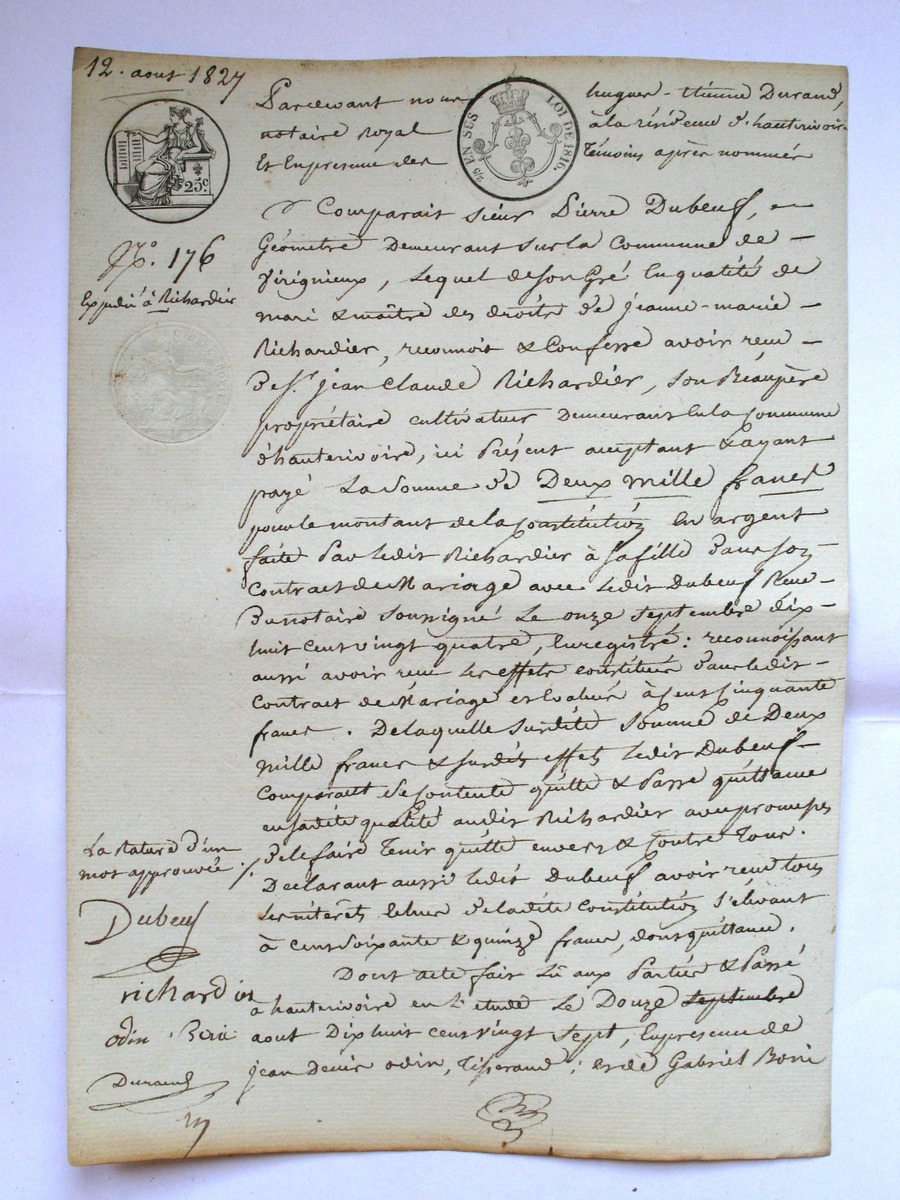 12. aout 1827
25c
25 EN SUS
LOI DE 1816.
N.o 176
Expedié à Richardier
Pardevant nous hugues-étienne Durand,
notaire royal à la résidence d'hauterivoire
Et En presence des témoins après nommés
Comparait sieur Pierre Dubeuf,
Géomètre Demeurant sur la Commune de
Virignieux, Lequel de son Gré En qualité de
mari & maître des droits de jeanne-marie
Richardier, reconnoit & Confesse avoir recu
De Sr. jean Claude Richardier, son Beaupère
propriétaire cultivateur Demeurant En la Commune
d'hauterivoire, ici Présent acceptant & ayant
payé La somme de Deux mille francs
pour le montant de la Constitution En argent
faite Par ledit Richardier à sa fille Dans son
Contract de Mariage avec ledit Dubeuf Recu
Du notaire soussigné Le onze septembre dix-
huit cent vingt quatre, Enregistré : reconnoissant
aussi avoir recu Les effets constitués Dans ledit
Contract de Mariage et Evalués à Cent Cinquante
francs. De laquelle susdite Somme de Deux
mille francs & susdits effets ledit Dubeuf
comparait se contente quitte & Passe quittance
en sadite qualité audit Richardier avec promesses
De le faire Tenir quitte envers & Contre Tous.
Declarant aussi ledit Dubeuf avoir recu tous
Les intérêts Echus de ladite Constitution s'élevant
à cent soixante & quinze francs, dont quittance.
Dont acte fait Lu aux Parties & Passé
à hauterivoire en l'étude Le Douze septembre
aout Dix huit cent vingt sept, En presence de
jean Denis odin, Tisserand ; et de Gabriel Borie
La rature d'un
mot approuvée ./.
Dubeuf
richardier
odin Borie
Durand